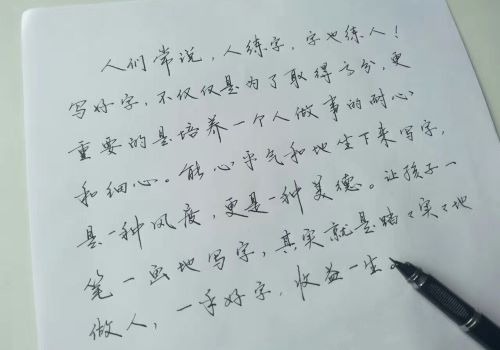 人们常说，人练字，字也练人！
写好字，不仅仅是为了取得高分，更
重要的是培养一个人做事的耐心
和细心。能心平气和地坐下来写字，
是一种风度，更是一种美德。让孩子一
笔一画地写字，其实就是踏々实々地
做人，一手好字，收益一生。